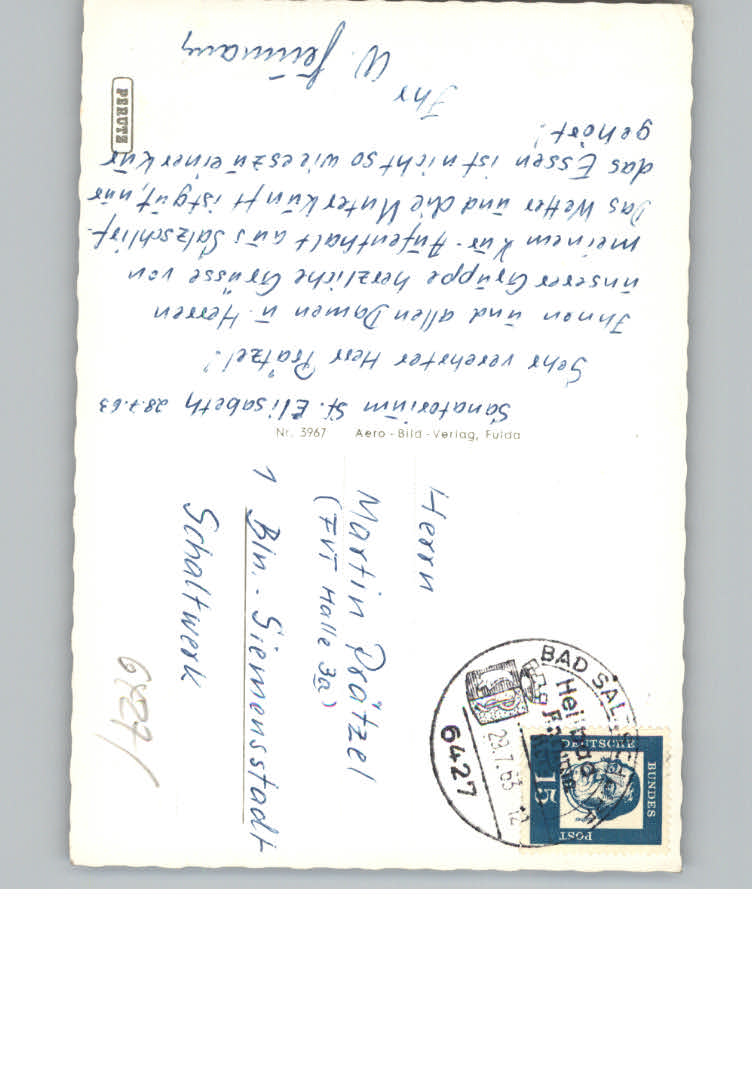 Sanatorium St. Elisabeth 28.7.63
Sehr verehrter Herr Prätzel!
Ihnen und allen Damen u. Herren
unserer Gruppe herzliche Grüsse von
meinem Kur-Aufenthalt aus Salzschlirf.
Das Wetter und die Unterkunft ist gut, nur
das Essen ist nicht so wie es zu einer Kur
gehört!
Ihr
W.
PERUTZ
Nr. 3967 Aero-Bild-Verlag, Fulda
Herrn
Martin Prätzel
(FVT Halle 3a)
1 Bln.-Siemensstadt
Schaltwerk
BAD SALZSCHLIRF
6427
29.7.63 12
DEUTSCHE
BUNDES
POST
15
6427